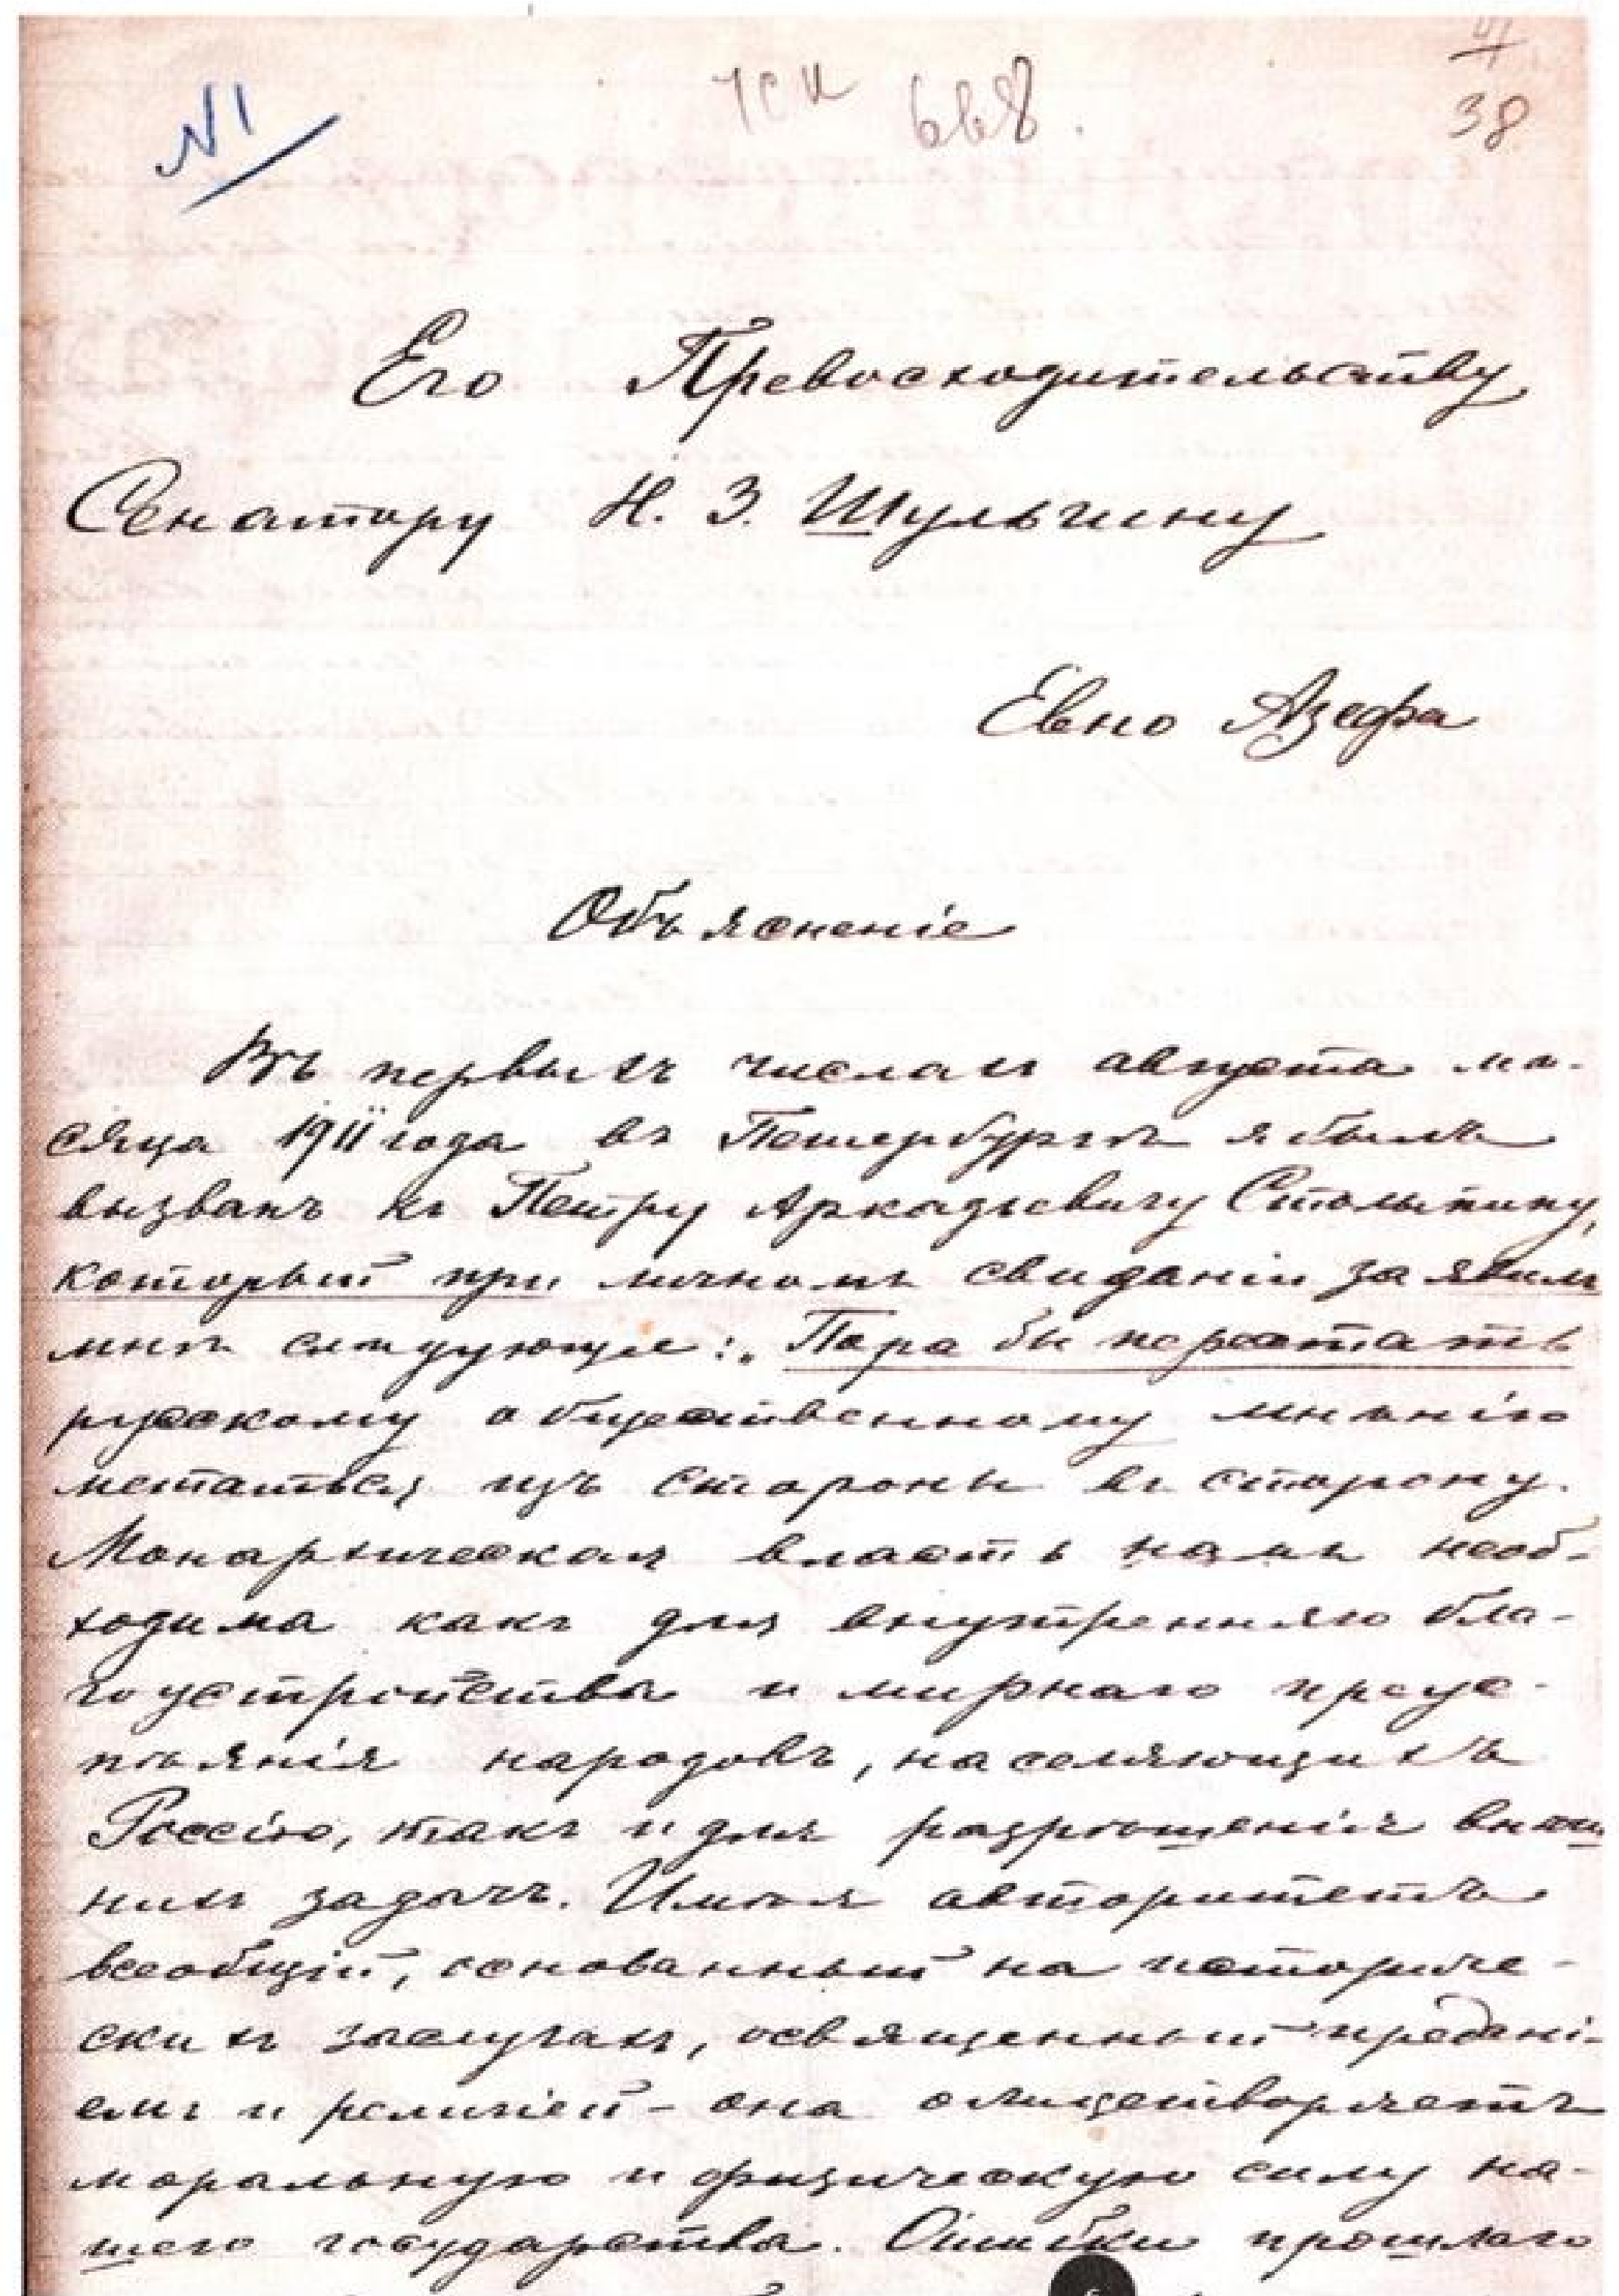 N1
668.
38
Его Превосходительству
Сенатору Н. З. Шульгину
Евно Азефа
Объясненіе
Въ первыхъ числахъ августа мѣ-
сяца 1911 года въ Петербургѣ я былъ
вызванъ къ Петру Аркадьевичу Столыпину,
который при личномъ свиданіи заявилъ
мнѣ слѣдующее: „Пора бы перестать
русскому общественному мнѣнію
метаться изъ стороны въ сторону.
Монархическая власть намъ необ-
ходима какъ для внутренняго бла-
гоустройства и мирнаго преус-
пѣянія народовъ, населяющихъ
Россію, такъ и для разрѣшенія внѣш
нихъ задачъ. Имѣя авторитетъ
всеобщій, основанный на историче-
скихъ заслугахъ, освященный предані-
емъ и религіей - она олицетворяетъ
моральную и физическую силу на-
шего государства. Ошибки прошлаго